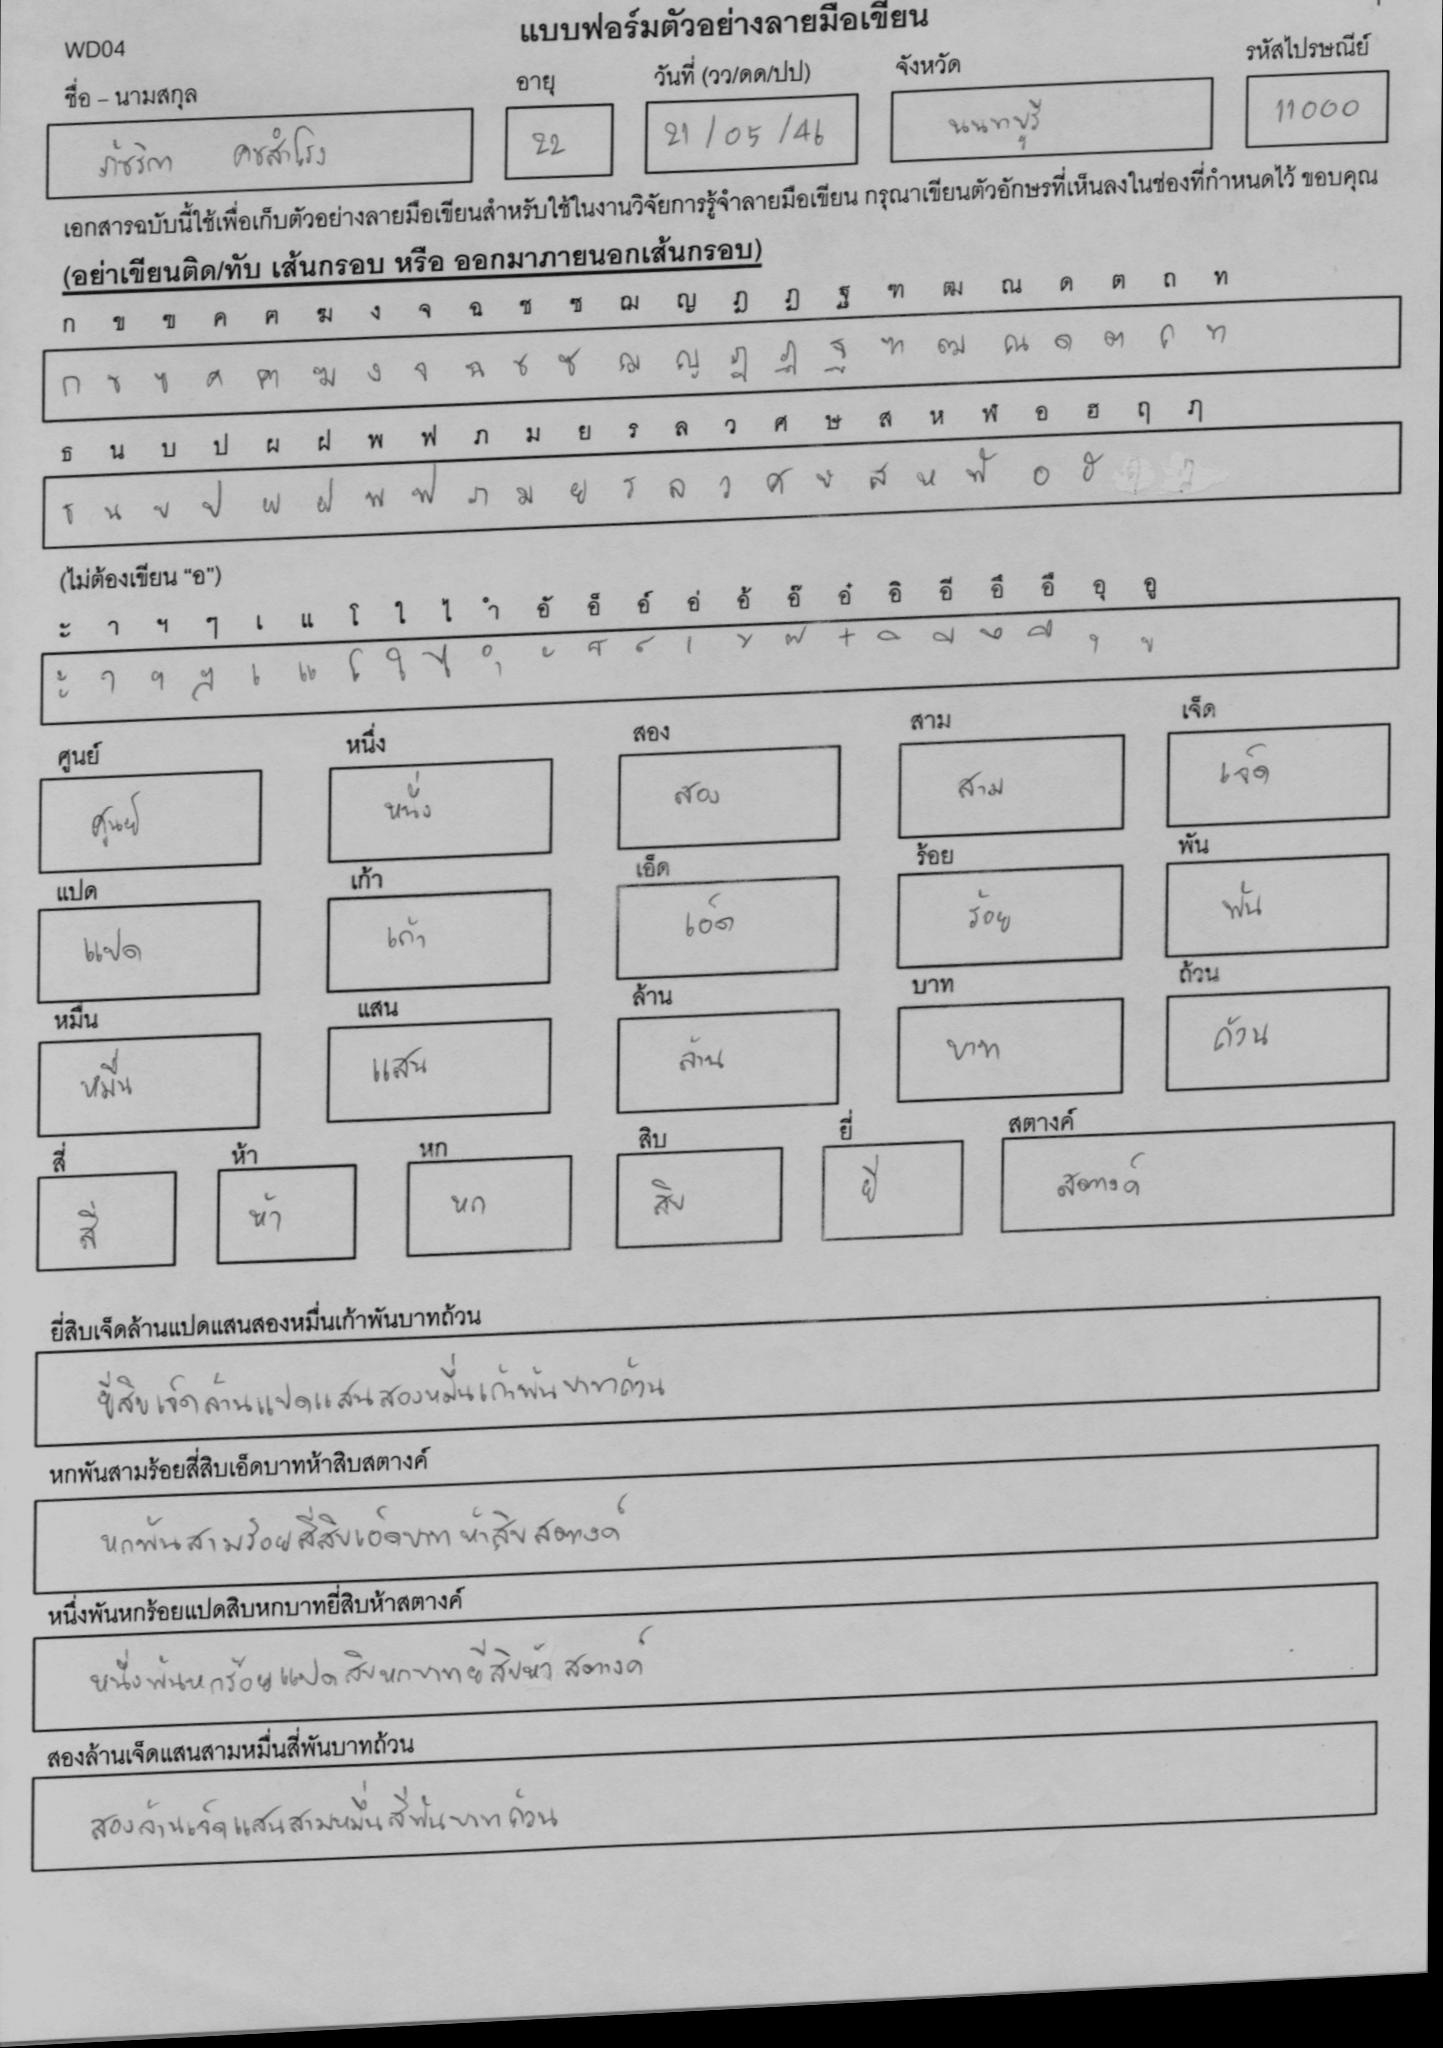 แบบฟอร์มตัวอย่างลายมือเขียน
WD04
ชื่อ – นามสกุล อายุ วันที่ (วว/ดด/ปป) จังหวัด รหัสไปรษณีย์
ภัชริกา คชสำโรง 22 21/05/46 นนทบุรี 11000
เอกสารฉบับนี้ใช้เพื่อเก็บตัวอย่างลายมือเขียนสำหรับใช้ในงานวิจัยการรู้จำลายมือเขียน กรุณาเขียนตัวอักษรที่เห็นลงในช่องที่กำหนดไว้ ขอบคุณ
(อย่าเขียนติด/ทับ เส้นกรอบ หรือ ออกมาภายนอกเส้นกรอบ)
ก ข ฃ ค ฅ ฆ ง จ ฉ ช ซ ฌ ญ ฎ ฏ ฐ ฑ ฒ ณ ด ต ถ ท
ก ข ฃ ค ฅ ฆ ง จ ฉ ช ซ ฌ ญ ฎ ฏ ฐ ฑ ฒ ณ ด ต ถ ท
ธ น บ ป ผ ฝ พ ฟ ภ ม ย ร ล ว ศ ษ ส ห ฬ อ ฮ ฤ ฦ
ธ น บ ป ผ ฝ พ ฟ ภ ม ย ร ล ว ศ ษ ส ห ฬ อ ฮ ฤ ฦ
(ไม่ต้องเขียน “อ”)
ะ า ฯ ๆ เ แ โ ใ ไ ำ อั อ็ อ์ อ่ อ้ อ๊ อ๋ อิ อี อึ อื อุ อู
ะ า ฯ ๆ เ แ โ ใ ไ ำ ั ็ ์ ่ ้ ๊ ๋ ิ ี ึ ื ุ ู
ศูนย์ หนึ่ง สอง สาม เจ็ด
ศูนย์ หนึ่ง สอง สาม เจ็ด
แปด เก้า เอ็ด ร้อย พัน
แปด เก้า เอ็ด ร้อย พัน
หมื่น แสน ล้าน บาท ถ้วน
หมื่น แสน ล้าน บาท ถ้วน
สี่ ห้า หก สิบ ยี่ สตางค์
สี่ ห้า หก สิบ ยี่ สตางค์
ยี่สิบเจ็ดล้านแปดแสนสองหมื่นเก้าพันบาทถ้วน
ยี่สิบเจ็ดล้านแปดแสนสองหมื่นเก้าพันบาทถ้วน
หกพันสามร้อยสี่สิบเอ็ดบาทห้าสิบสตางค์
หกพันสามร้อยสี่สิบเอ็ดบาทห้าสิบสตางค์
หนึ่งพันหกร้อยแปดสิบหกบาทยี่สิบห้าสตางค์
หนึ่งพันหกร้อยแปดสิบหกบาทยี่สิบห้าสตางค์
สองล้านเจ็ดแสนสามหมื่นสี่พันบาทถ้วน
สองล้านเจ็ดแสนสามหมื่นสี่พันบาทถ้วน